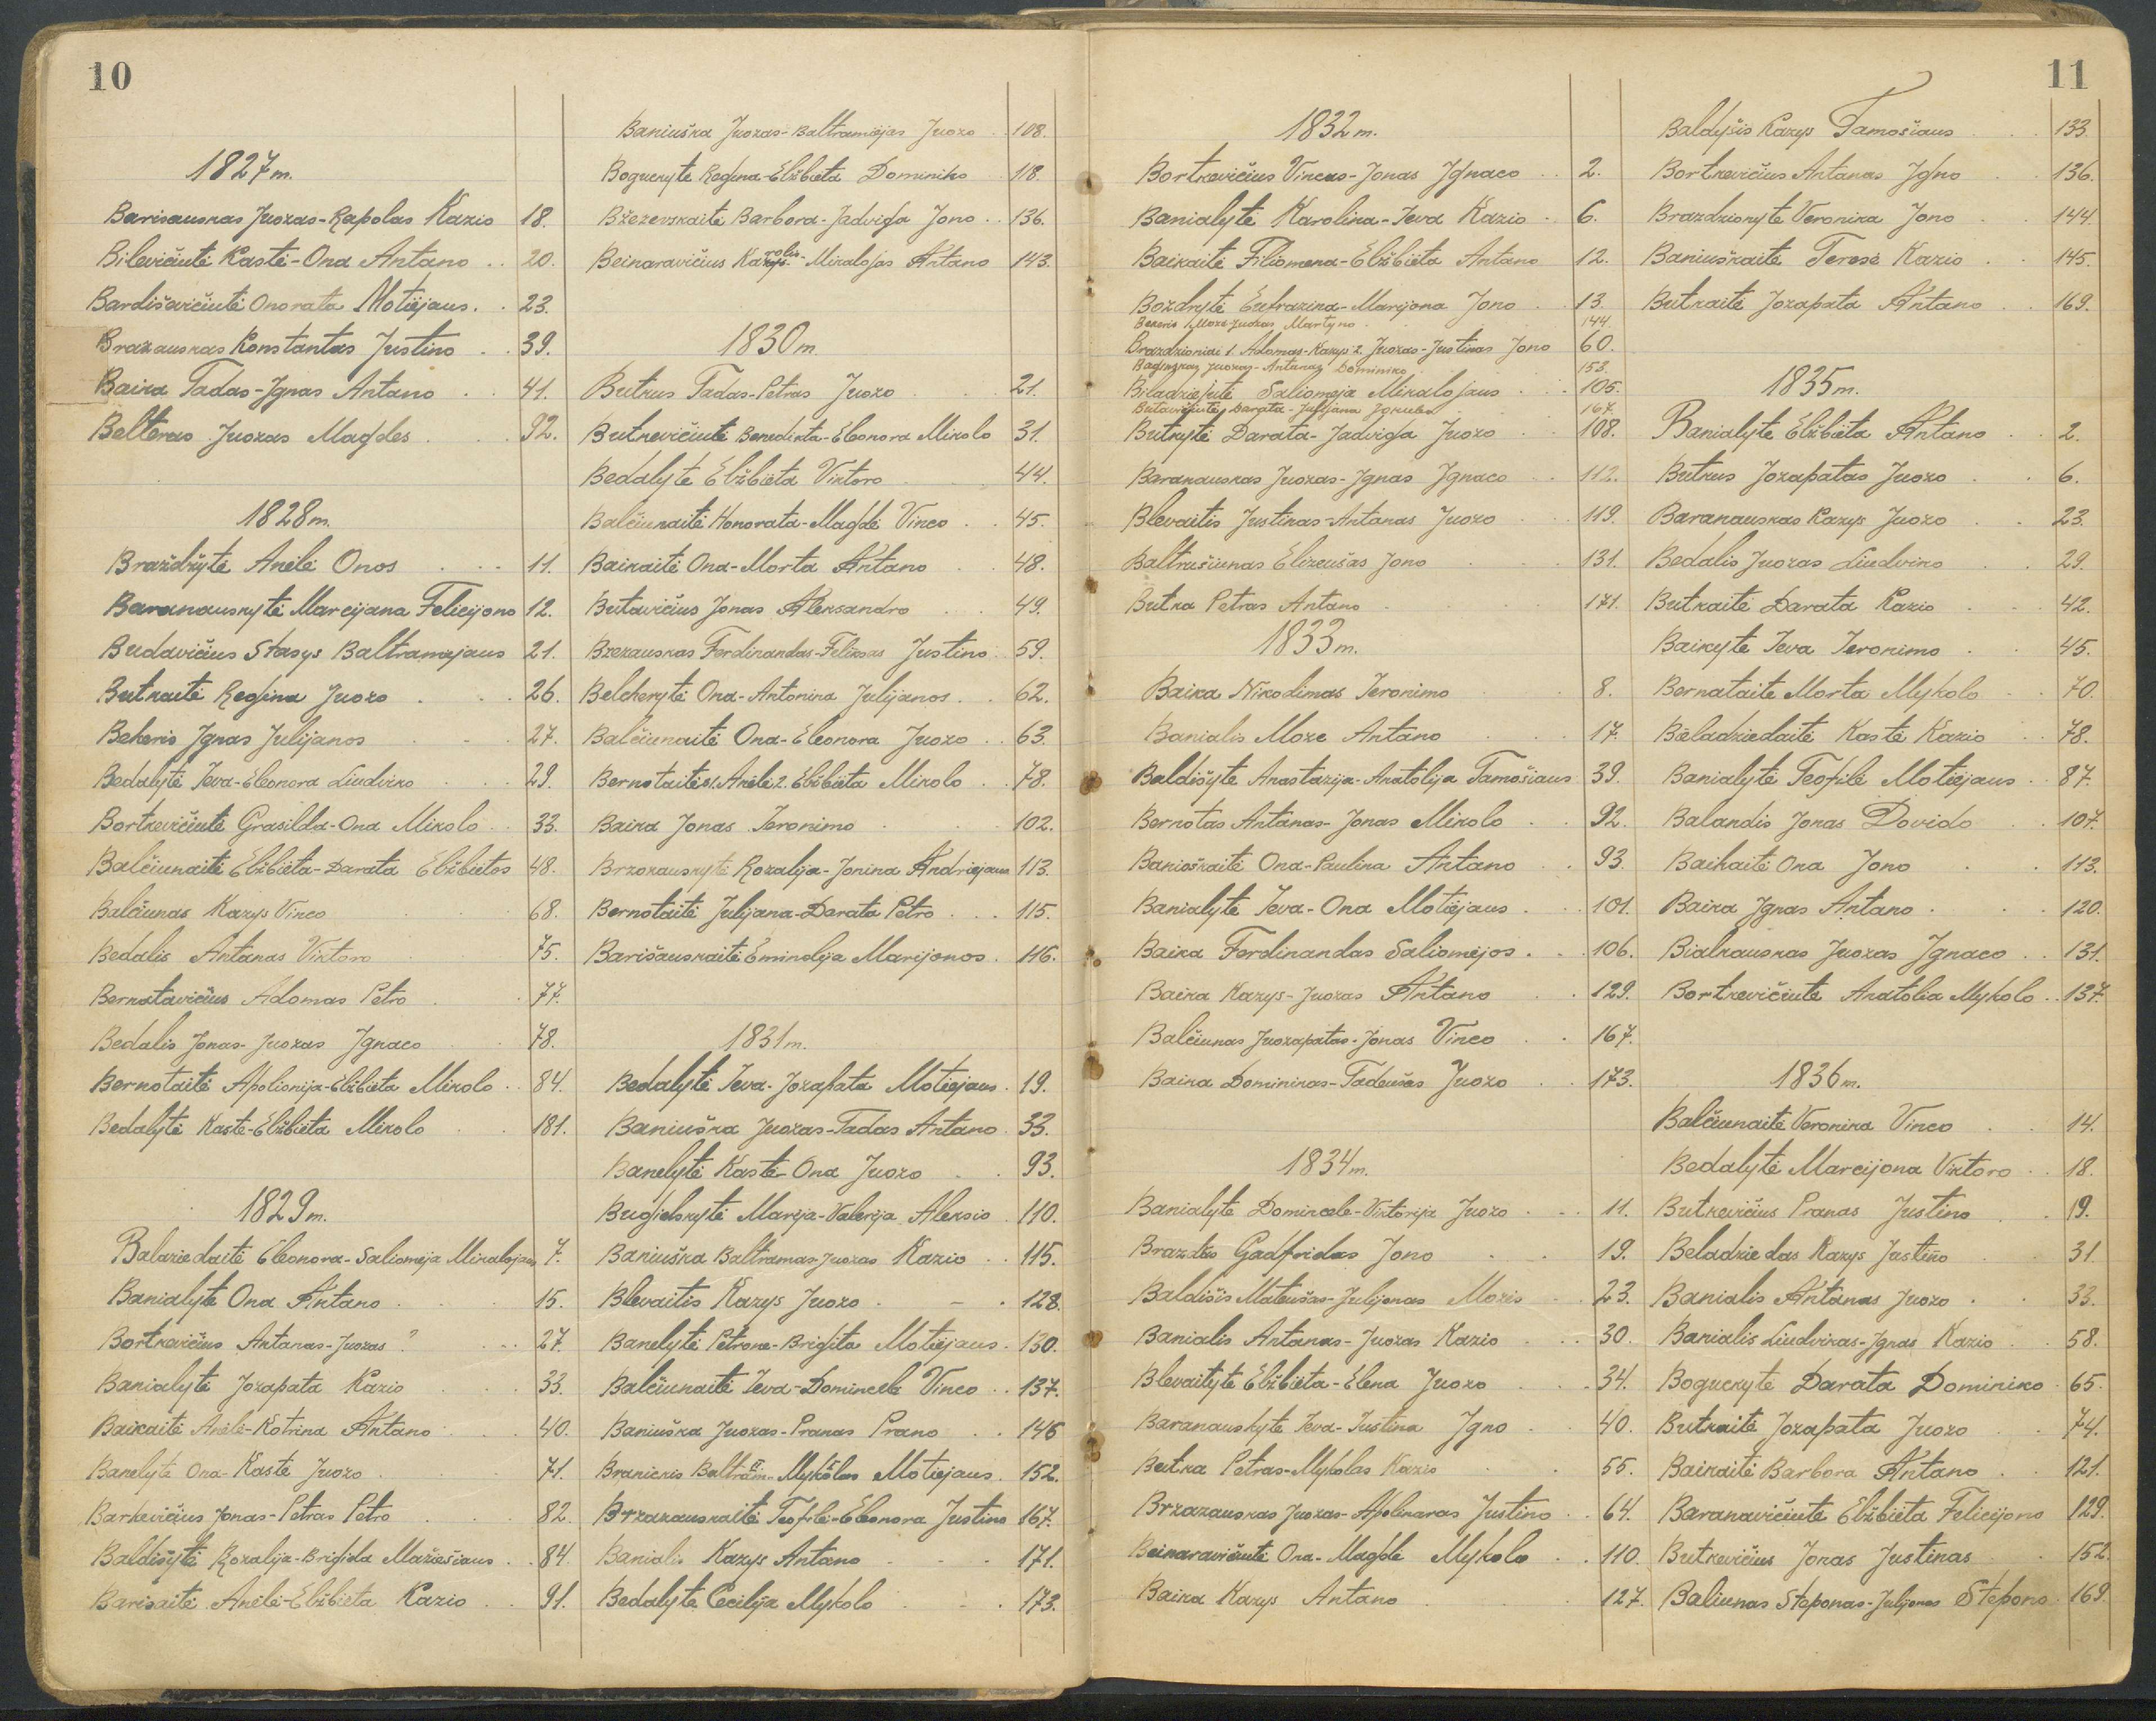 10
1827 m.
Barisauskas Juozas-Rapolas Kazio 18.
Bilevičiutė Kastė-Ona Antano 20.
Bardiševičiutė Onorata Motiejaus. 23.
Brazauskas Konstantas Justino 39.
Baika Tadas-Ignas Antano 41.
Belteras Juozas Magdes 92.
1828 m.
Braždžytė Anelė Onos 11.
Baranauskytė Marcijana Felicijono 12.
Budavičius Stasys Baltramejaus 21.
Butkaitė Regina Juozo 26.
Bekeris Ignas Julijanos 27.
Bedalytė Ieva-Eleonora Liudviko 29.
Bortkevičiutė Grasilda-Ona Mikolo 33.
Balčiunaitė Elžbieta-Darata Elžbietos 48.
Balčiunas Kazys Vinco 68.
Bedalis Antanas Viktoro 75.
Bernotavičius Adomas Petro 77.
Bedalis Jonas-Juozas Ignaco 78.
Bernotaitė Apolionija-Elžbieta Mikolo 84.
Bedalytė Kastė-Elžbieta Mikolo 181.
1829 m.
Balaziedaitė Eleonora-Saliomėja Mikalojaus 7.
Banialytė Ona Antano 15.
Bortkevičius Antanas-Juozas ? 27.
Banialytė Jozapata Kazio 33.
Baikaitė Anelė-Kotrina Antano 40.
Banelytė Ona-Kastė Juozo 71.
Barkevičius Jonas-Petras Petro 82.
Baldišytė Rozalija-Brigida Mažiešiaus 84.
Barisaitė Anelė-Elžbieta Kazio 91.
Baniuška Juozas-Baltramiejas Juozo 108.
Boguckytė Regina-Elžbieta Dominiko 118.
Bžezevskaitė Barbora-Jadviga Jono 136.
Beinaravičius Karolis-Mikalojas Antano 143.
1830 m
Butkus Tadas-Petras Juozo 21.
Butkevičiutė Benedikta-Eleonora Mikolo 31.
Bedalytė Elžbieta Viktoro 44.
Balčiunaitė Honorata-Magdė Vinco 45.
Baikaitė Ona-Morta Antano 48.
Butavičius Jonas Aleksandro 49.
Bzezauskas Ferdinandas-Feliksas Justino 59.
Belchekytė Ona-Antonina Julijanos 62.
Balčiunaitė Ona-Eleonora Juozo 63.
Bernotaitės 1. Anelė 2. Elžbieta Mikolo 78.
Baika Jonas Jeronimo 102.
Brzozauskytė Rozalija-Jonina Andriejaus 113.
Bernotaitė Julijana-Darata Petro 115.
Barišauskaitė Emincija Marijonos. 116.
1831 m.
Bedalytė Ieva-Jozapata Motiejaus 19.
Baniuška Juozas-Tadas Antano 33.
Banelytė Kastė-Ona Juozo 93.
Bugielskytė Marija-Valerija Aleksio 110.
Baniuška Baltramas-Juozas Kazio 115.
Blevaitis Kazys Juozo 128.
Banelytė Petrone-Brigita Motiejaus. 130.
Balčiunaitė Ieva-Domincelė Vinco 137.
Baniuška Juozas-Pranas Prano 146
Branickis Baltram.-Mykolas Motiejaus. 152.
Brzazauskaitė Teofilė-Eleonora Justino 167.
Banialis Kazys Antano 171.
Bedalytė Cecilija Mykolo 173.
11
1832 m.
Bortkevičius Vincas-Jonas Ignaco 2.
Banialytė Karolina-Ieva Kazio 6.
Baikaitė Filiomena-Elžbieta Antano 12.
Bozdrytė Eufrazina-Marijona Jono 13.
144.
Brazdzioniai 1. Adomas-Kazys 2. Juozas-Justinas Jono 60.
Juozas-Antanas Dominiko 153.
Biladziejutė Saliomeja Mikalojaus 105.
Butavičiutė Darata-Julijana Jokubo 167.
Butkytė Darata-Jadviga Juozo 108.
Baranauskas Juozas-Ignas Ignaco 112.
Blevaitis Justinas-Antanas Juozo 119.
Baltrušiunas Elizeušas Jono 131.
Butka Petras Antano 171.
1833 m.
Baika Nikodimas Jeronimo 8.
Banialis Moze Antano 17.
Baldišytė Anastazija-Anatolija Tamošiaus 39.
Bernotas Antanas-Jonas Mikolo 92.
Banioškaitė Ona-Paulina Antano 93.
Banialytė Ieva-Ona Motiejaus 101.
Baika Ferdinandas Saliomėjos 106.
Baika Kazys-Juozas Antano 129.
Balčiunas Juozapatas-Jonas Vinco 167.
Baika Dominikas-Tadeušas Juozo 173.
1834 m.
Banialytė Domincele-Viktorija Juozo 11.
Brazdas Gadfridas Jono 19.
Baldišis Mateušas-Julijonas Mozis 23.
Banialis Antanas-Juozas Kazio 30.
Blevaitytė Elžbieta-Elena Juozo 34.
Baranauskytė Ieva-Justina Igno 40.
Butka Petras-Mykolas Kazio 55.
Brzazauskas Juozas-Apolinaras Justino 64.
Beinaravičiutė Ona-Magdė Mykolo 110.
Baika Kazys Antano 127.
Baldyšis Kazys Tamošiaus 133.
Bortkevičius Antanas Igno 136.
Brazdzionytė Veronika Jono 144.
Baniuškaitė Teresė Kazio 145.
Butkaitė Jozapata Antano 169.
1835 m.
Banialytė Elžbieta Antano 2.
Butkus Jozapatas Juozo 6.
Baranauskas Kazys Juozo 23.
Bedalis Juozas Liudviko 29.
Butkaitė Darata Kazio 42.
Baikytė Ieva Jeronimo 45.
Bernataitė Morta Mykolo 70.
Beladziedaitė Kastė Kazio 78.
Banialytė Teofilė Motiejaus 87.
Balandis Jonas Dovido 107.
Baikaitė Ona Jono 113.
Baika Ignas Antano 120.
Bialkauskas Juozas Ignaco 131.
Bortkevičiutė Anatolia Mykolo 137.
1836 m.
Balčiunaitė Veronika Vinco 14.
Bedalytė Marcijona Viktoro 18.
Butkevičius Pranas Justino 19.
Beladziedas Kazys Justino 31
Banialis Antanas Juozo 33.
Banialis Liudvikas-Ignas Kazio 58.
Boguckytė Darata Dominiko 65.
Butkaitė Jozapata Juozo 74.
Baikaitė Barbora Antano 121.
Baranavičiutė Elžbieta Felicijono 129.
Butkevičius Jonas Justinas 152.
Baliunas Steponas-Julijonas Stepono 169.